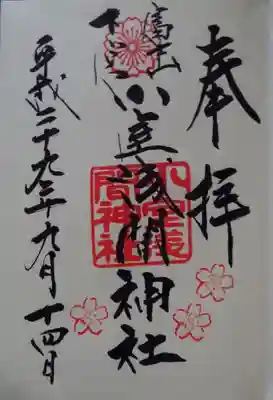 奉拝
富士
下宮
小室浅間神社
小室浅間神社
平成二十九年九月十四日